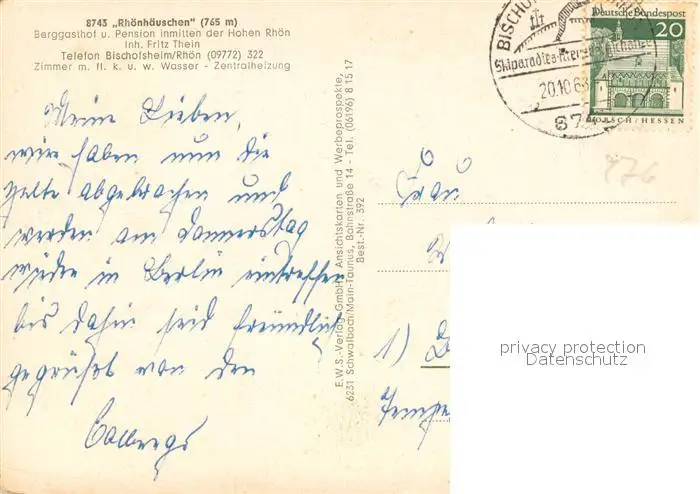 8743 „Rhönhäuschen" (765 m)
Berggasthof u. Pension inmitten der Hohen Rhön
Inh. Fritz Thein
Telefon Bischofsheim/Rhön (09772) 322
Zimmer m. fl. k. u. w. Wasser - Zentralheizung
Meine Lieben,
wir haben nun die
Zelte abgebrochen und
werden am Donnerstag
wieder in Berlin eintreffen
bis dahin seid freundlich
gegrüßt von den
E.W.S.-Verlag GmbH, Ansichtskarten und Werbeprospekte,
6231 Schwalbach/Main-Taunus, Bahnstraße 14 - Tel. (06196) 8 15 17
Best.-Nr. 392
BISCHO
20.10.68
87
Deutsche Bundespost
20
LORSCH/HESSEN
976
Frau
1)
Tempe
privacy protection
Datenschutz